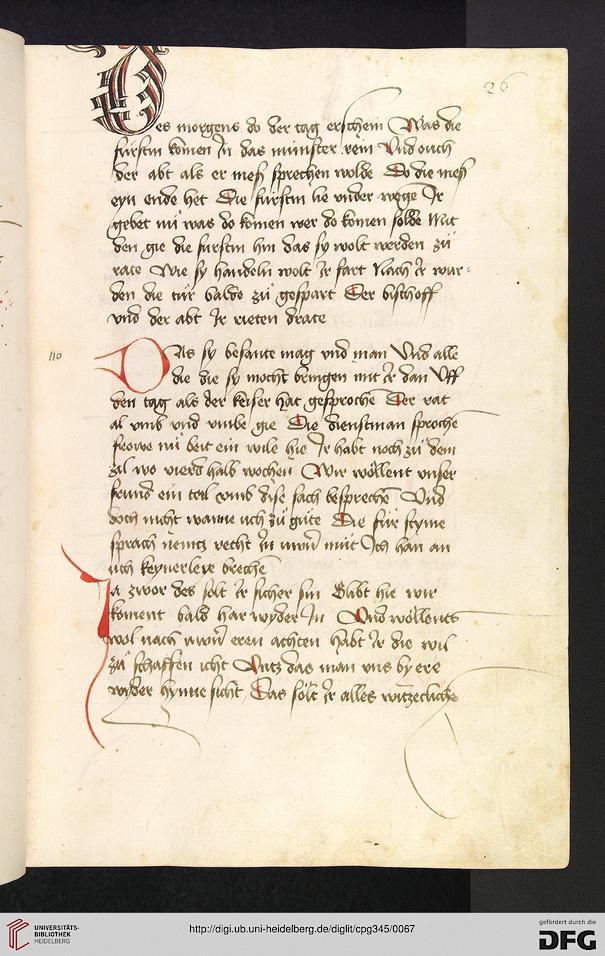 26
Des morgens do der tag erschein Was die
fürstin komen In das münster rein Vnd ouch
der abt als er mess sprechen wolde Do die mess
eyn ende het Die fürstin lie vnder wege Ir
gebet nü was do komen wer do komen solde Mit
den gie die fürstin hin das sy wolt werden zü
rate Wie sy handeln wolt Ir fart Nach Ir wur-
den die tür balde zü gespart Der bischoff
vnd der abt Ir rieten drate
110
Das sy besante mag vnd man Vnd alle
die die sy mocht bringen mit Ir dan Vff
den tag als der keiser hat gesproche Der rat
al vmb vnd vmbe gie Die dienstman sproche
frowe nü beit ein wile hie Ir habt noch zü dem
zil wo vierd halb wochen Wir wöllent vnser
frund ein teil vmb dise sach besprechē Vnd
doch nicht wanne uch zü güte Die für
sprach nemtz recht In uwer müt Ich han an
uch keynerleye breche
Ja zwor des sölt Ir sicher sin Blibt hie wir
koment bald har wyder In Vnd wöllents
wol nach uwern eren achten Habt Ir die wil
zü schaffen icht Untz das man uns by ere
wyder hynne sicht Das sölt Ir alles witzecliche
UNIVERSITÄTS-
BIBLIOTHEK
HEIDELBERG
http://digi.ub.uni-heidelberg.de/diglit/cpg345/0067
gefördert durch die
DFG